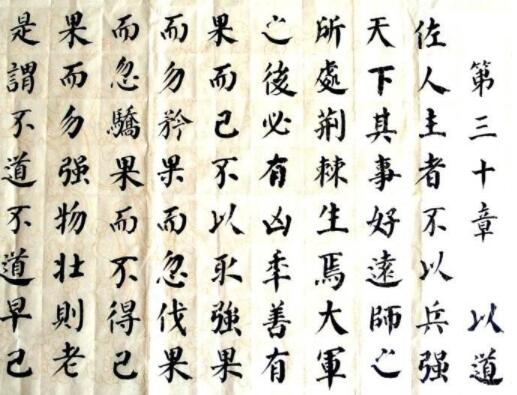 第三十章 以道
佐人主者不以兵强
天下其事好遠師之
所處荆棘生焉大軍
之後必有凶年善有
果而已不以取強果
而勿矜果而忽伐果
而忽驕果而不得已
果而勿强物壯則老
是謂不道不道早已